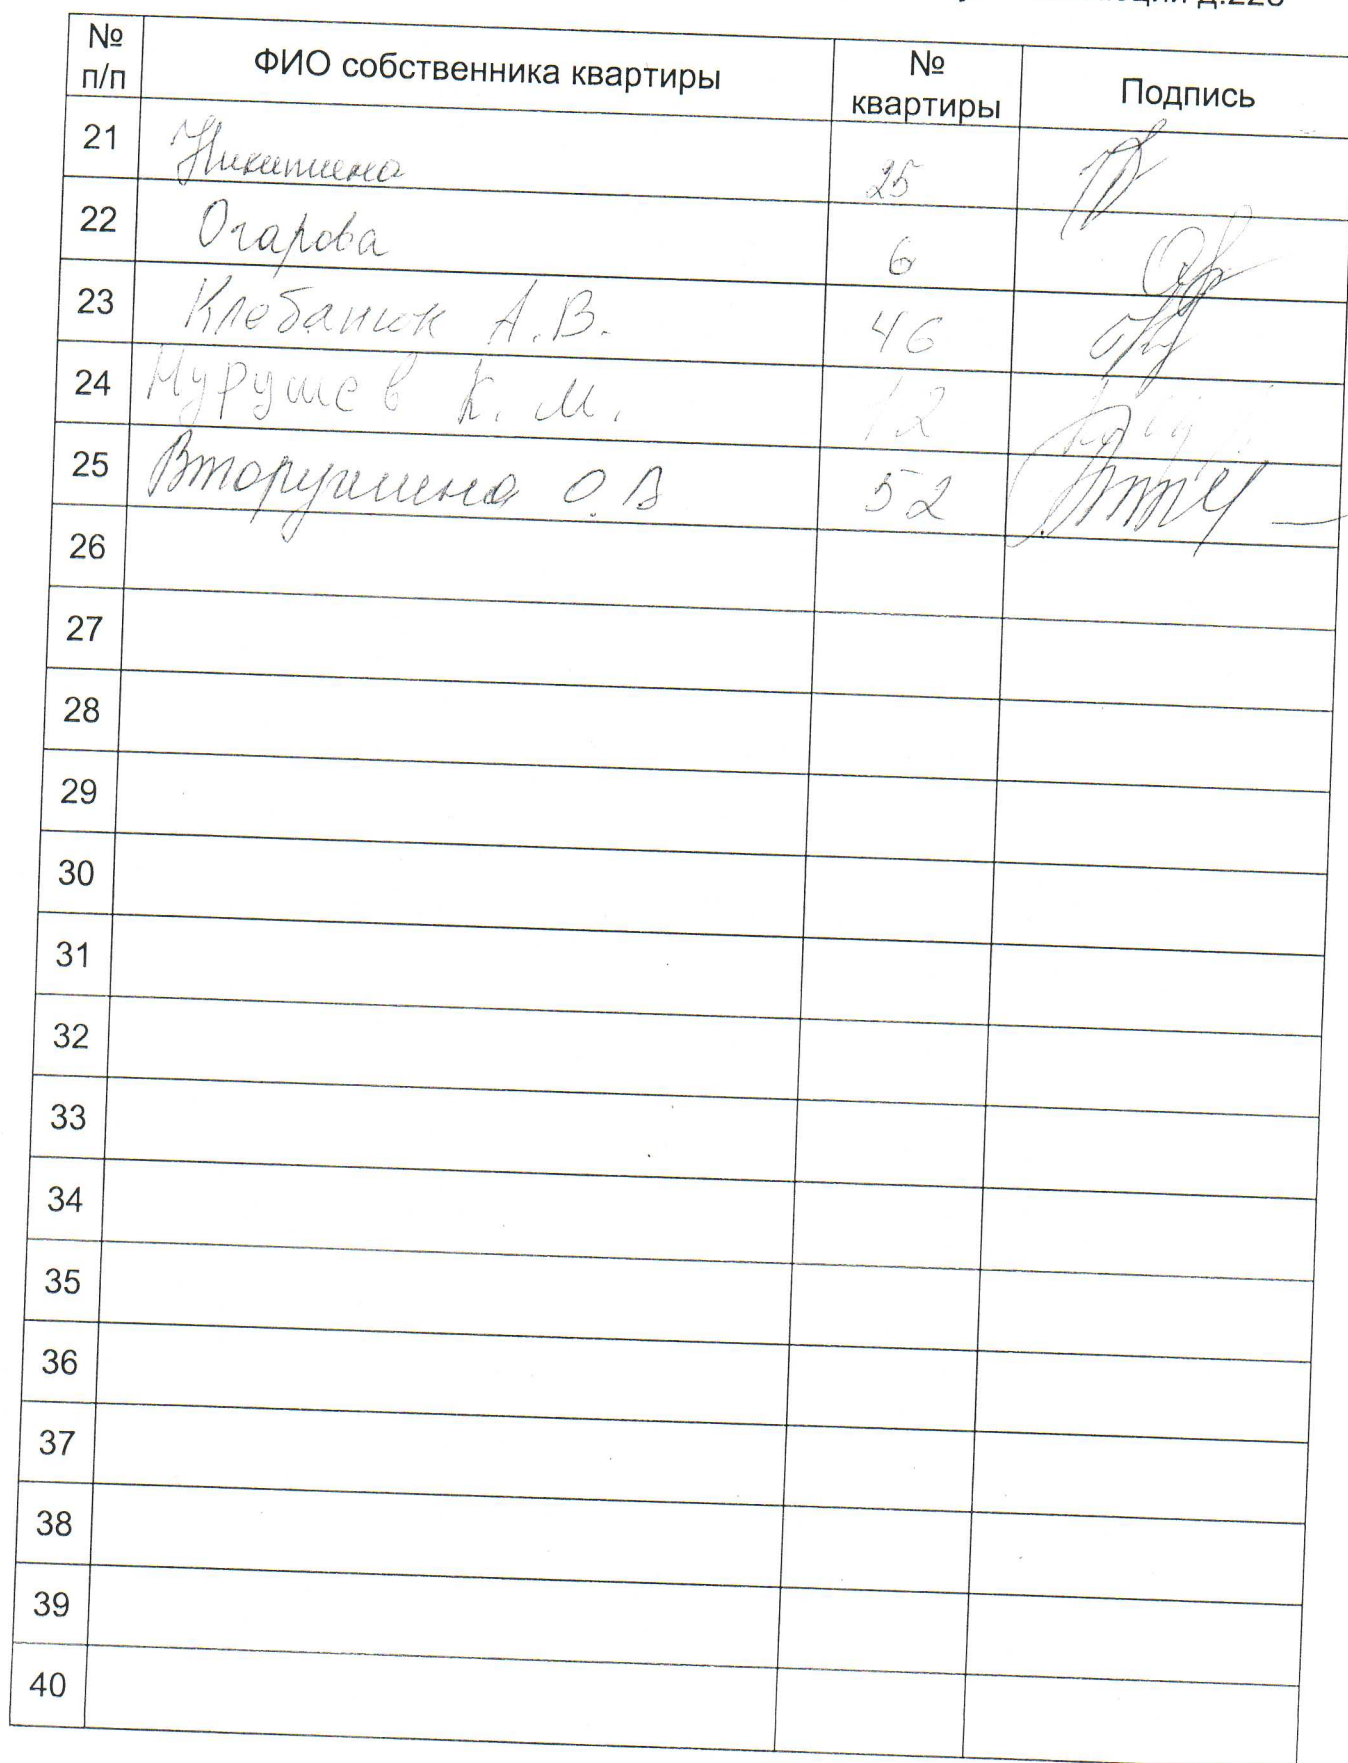 д.226
№ п/п ФИО собственника квартиры № квартиры Подпись
21 Никитина 25
22 Огарова 6
23 Клебанюк А.В. 46
24 Нурушев К.М. 12
25 Вторушина О.В 52
26
27
28
29
30
31
32
33
34
35
36
37
38
39
40